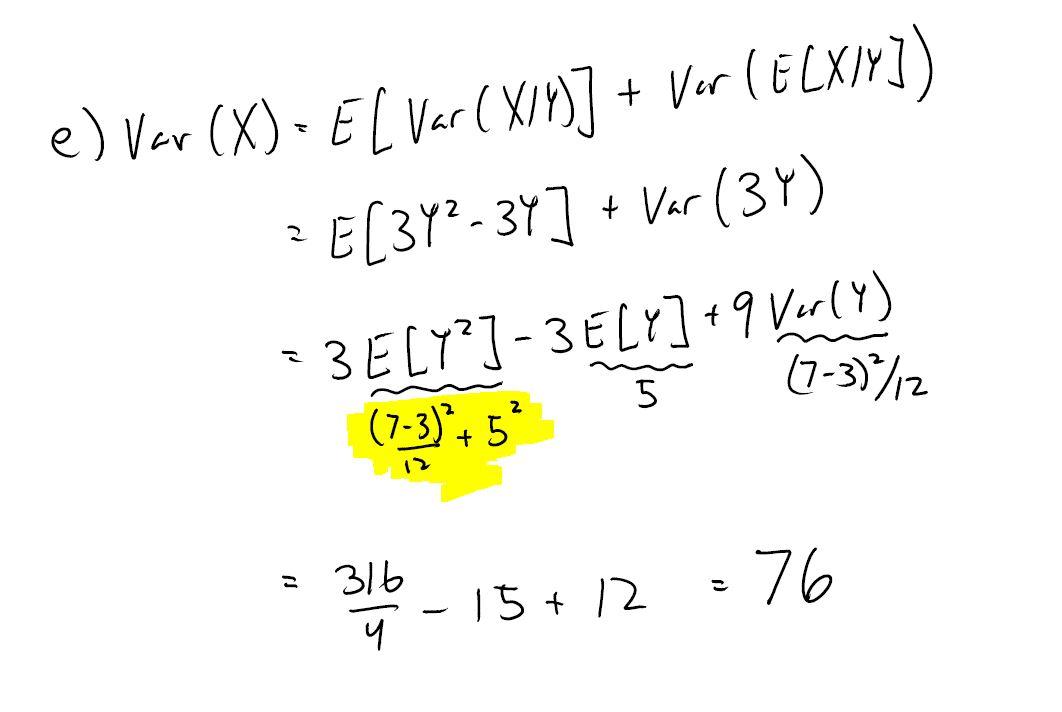 e) Var (X) = E[Var(X|Y)] + Var(E[X|Y])
= E[3Y² - 3Y] + Var(3Y)
= 3E[Y²] - 3E[Y] + 9Var(Y)
(7-3)²/12 + 5² 5 (7-3)²/12
= 316/4 - 15 + 12 = 76